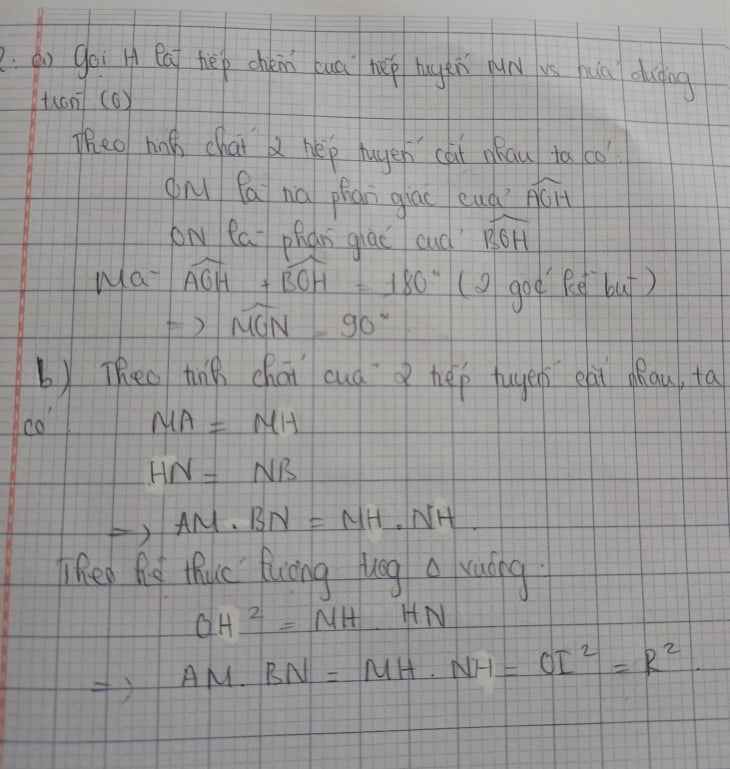 2. a) Gọi H là tiếp điểm của tiếp tuyến MN vs nửa đường
tròn (O)
Theo tính chất 2 tiếp tuyến cắt nhau ta có:
OM là tia phân giác của AOH
ON là phân giác của BOH
Mà AOH + BOH = 180° (2 góc kề bù)
=> MON = 90°
b) Theo tính chất của 2 tiếp tuyến cắt nhau, ta
có
MA = MH
HN = NB
=> AM . BN = MH . NH.
Theo hệ thức lượng trog Δ vuông:
OH² = MH . HN
=> AM . BN = MH . NH = OI² = R².